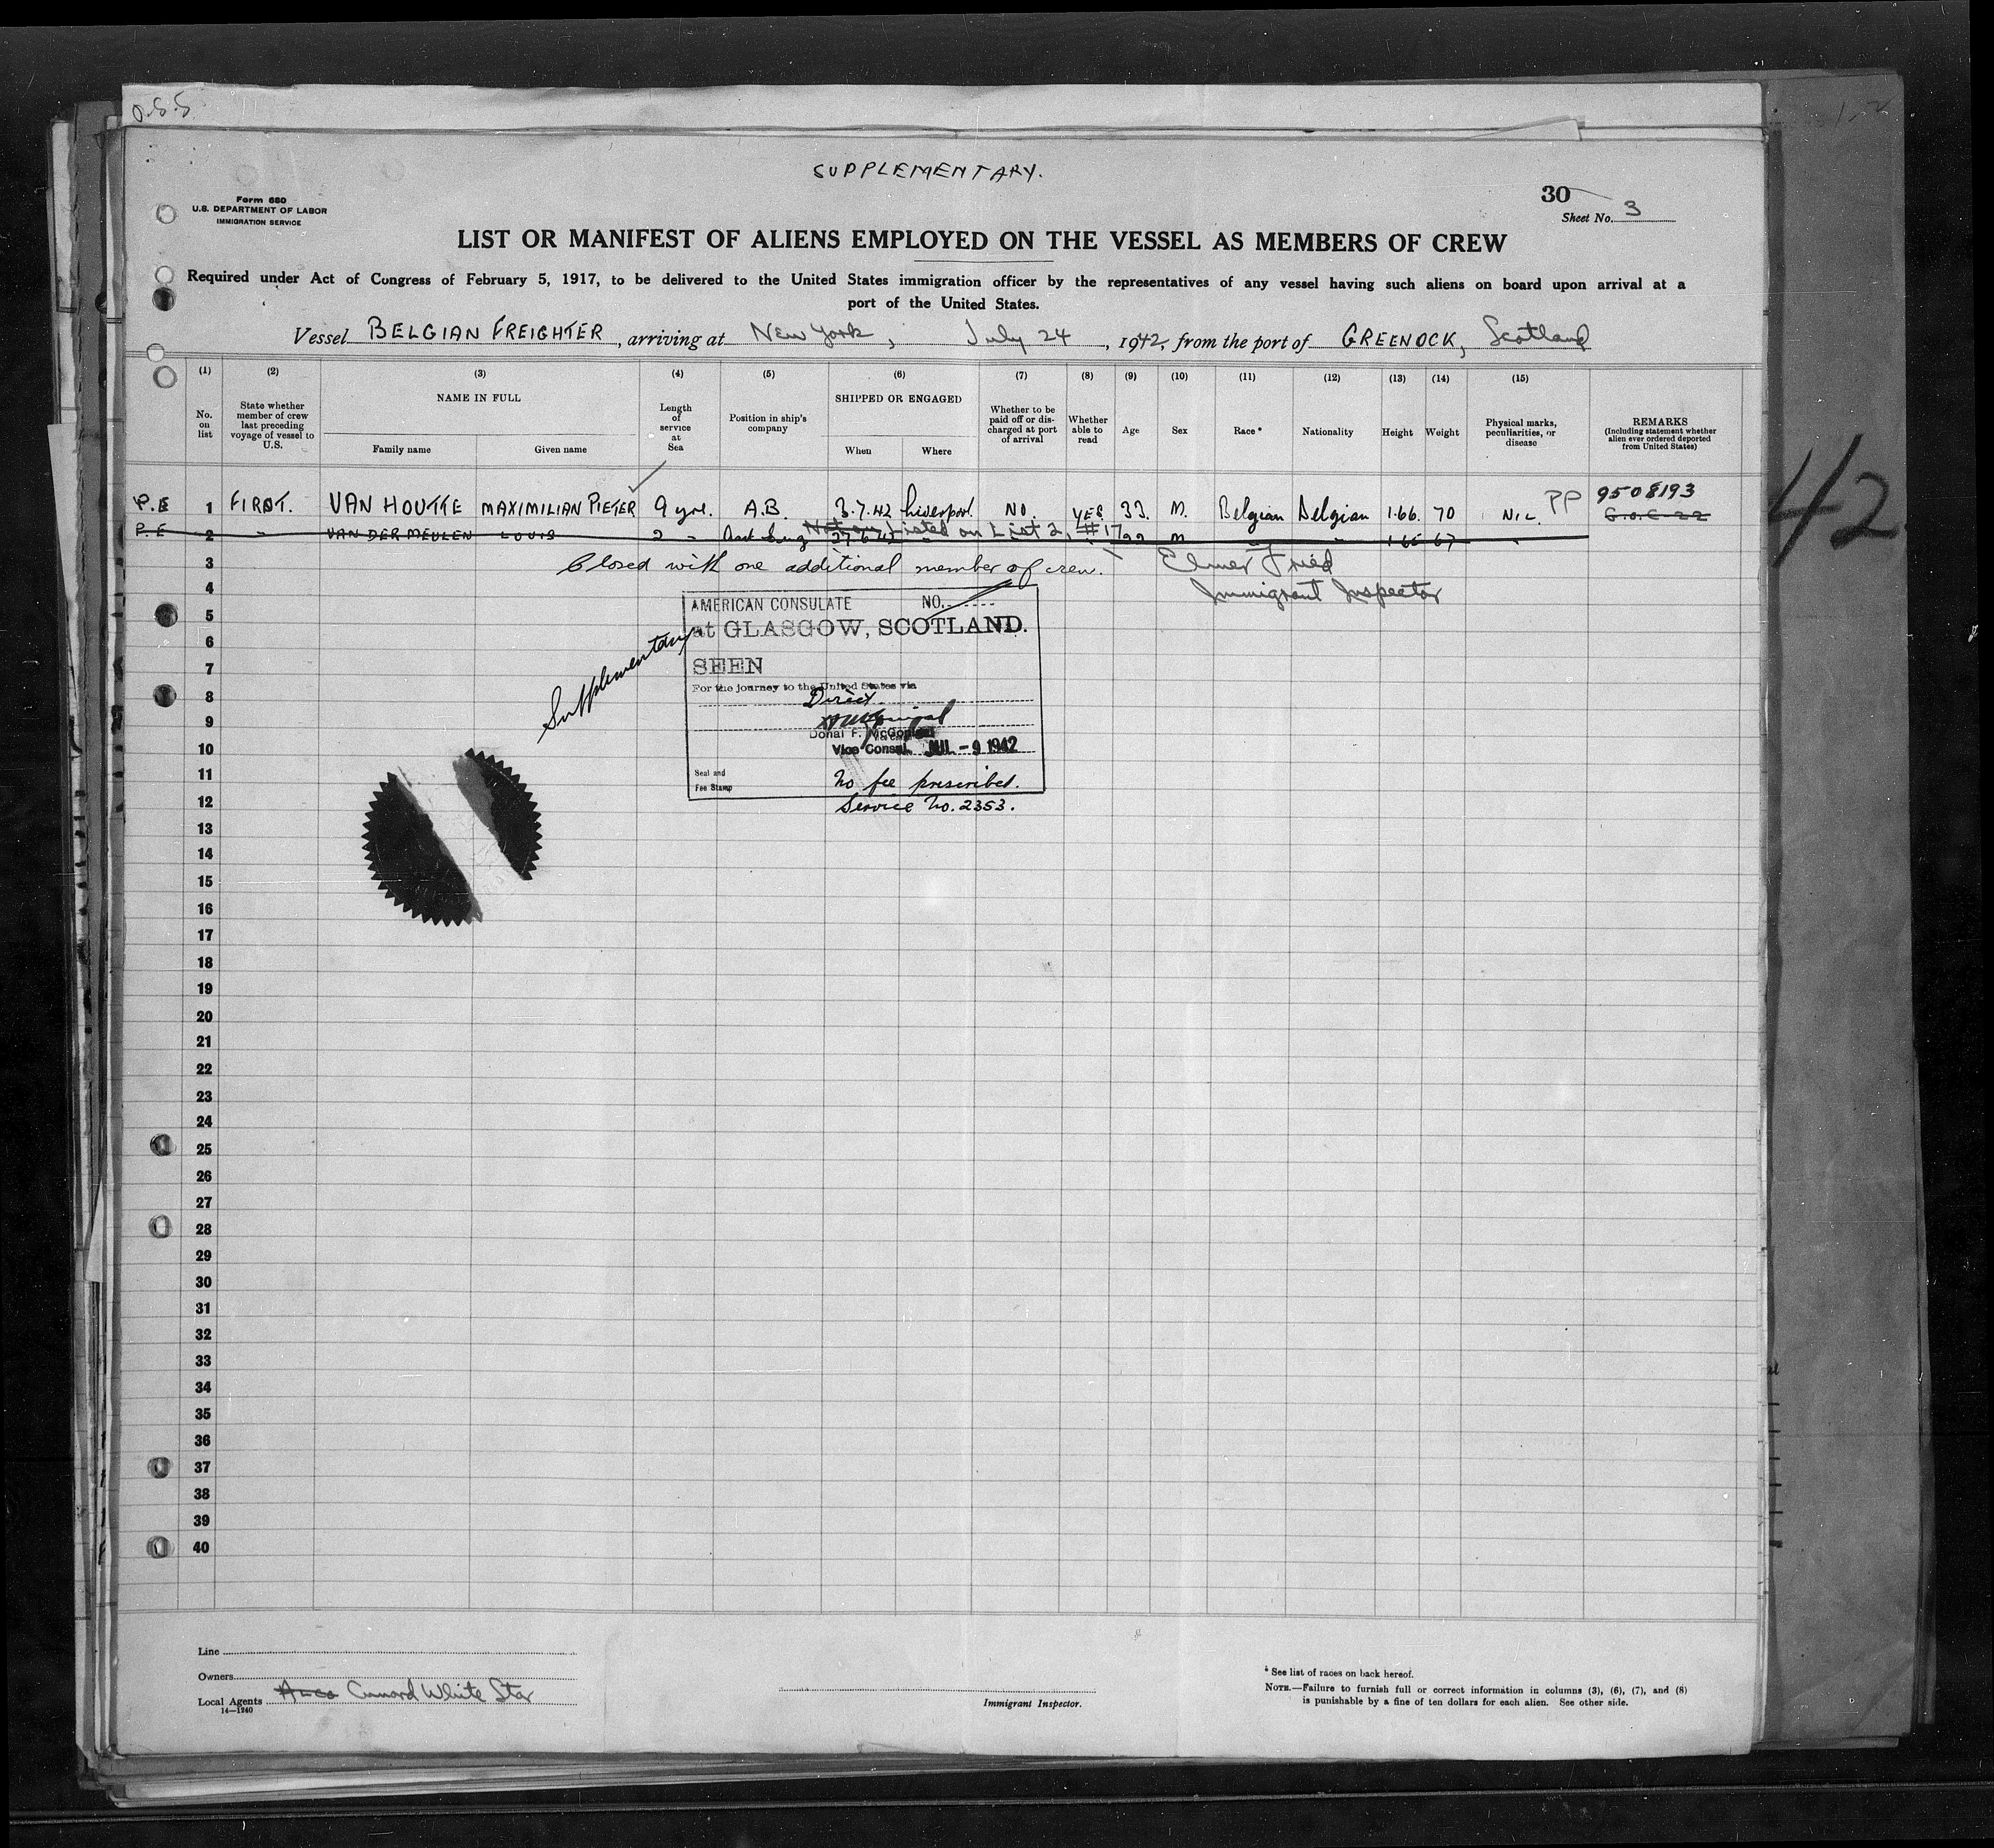 O.S.S.
SUPPLEMENTARY.
30
Form 680
U.S. DEPARTMENT OF LABOR
IMMIGRATION SERVICE
Sheet No. 3
LIST OR MANIFEST OF ALIENS EMPLOYED ON THE VESSEL AS MEMBERS OF CREW
Required under Act of Congress of February 5, 1917, to be delivered to the United States immigration officer by the representatives of any vessel having such aliens on board upon arrival at a
port of the United States.
Vessel BELGIAN FREIGHTER, arriving at New York, July 24, 1942, from the port of GREENOCK, Scotland
(1) (2) (3) (4) (5) (6) (7) (8) (9) (10) (11) (12) (13) (14) (15)
No. on list
State whether member of crew last preceding voyage of vessel to U.S.
NAME IN FULL
Family name
Given name
Length of service at Sea
Position in ship's company
SHIPPED OR ENGAGED
When
Where
Whether to be paid off or discharged at port of arrival
Whether able to read
Age
Sex
Race*
Nationality
Height
Weight
Physical marks, peculiarities, or disease
REMARKS
(Including statement whether alien ever ordered deported from United States)
P.E 1 FIRST. VAN HOUTTE MAXIMILIAN PIETER 9 yrs. A.B. 3.7.42 Liverpool. NO. YES 33. M. Belgian Belgian 1.66. 70 NIL PP 9508193
P.E 2 " VAN DER MEULEN LOUIS 2 " 27.6.42 Listed on List 2, #17 22 M 1.65 67
3 Closed with one additional member of crew. Elmer Fried
4 Immigrant Inspector
5
6
7
8
9
10
11
12
13
14
15
16
17
18
19
20
21
22
23
24
25
26
27
28
29
30
31
32
33
34
35
36
37
38
39
40
Supplementary
AMERICAN CONSULATE NO.
at GLASGOW, SCOTLAND.
SEEN
For the journey to the United States via
Direct
Donal F. McGonigal
Vice Consul. JUL - 9 1942
Seal and
Fee Stamp
No fee prescribed.
Service No. 2353.
42
Line
Owners
Local Agents Cunard White Star
14—1240
Immigrant Inspector.
* See list of races on back hereof.
NOTE.—Failure to furnish full or correct information in columns (3), (6), (7), and (8)
is punishable by a fine of ten dollars for each alien. See other side.